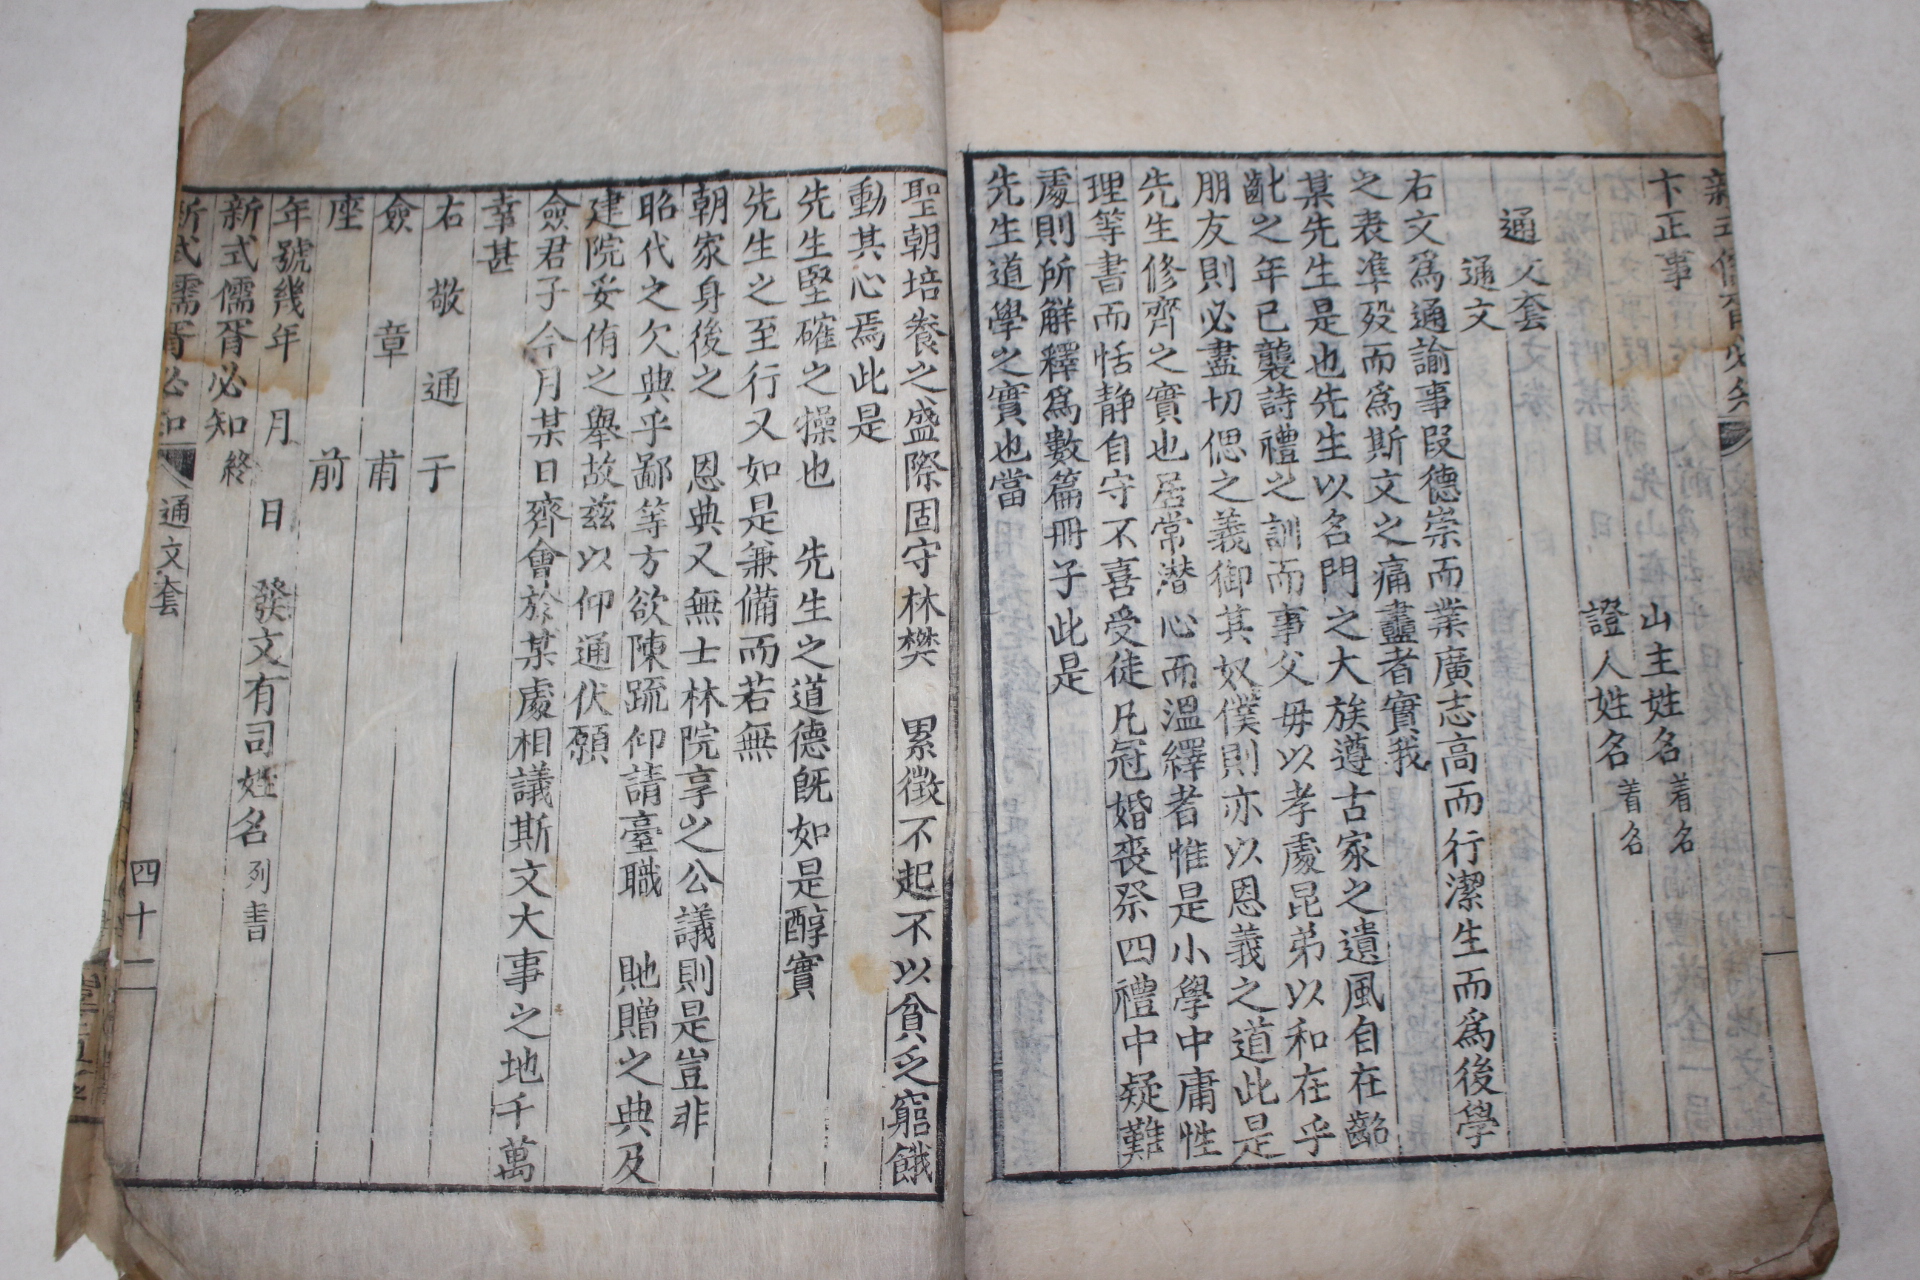 新式儒胥必知
卞正事
山主姓名着名
證人姓名着名
通文套
通文
右文爲通諭事叚德崇而業廣志高而行潔生而爲後學
之表準歿而爲斯文之痛盡者實我
某先生是也先生以名門之大族遵古家之遺風自在齠
齔之年已襲詩禮之訓而事父母以孝處昆弟以和在乎
朋友則必盡切偲之義御其奴僕則亦以恩義之道此是
先生修齊之實也居常潜心而溫繹者惟是小學中庸性
理等書而恬静自守不喜受徒凡冠婚喪祭四禮中疑難
處則所解釋爲數篇冊子此是
先生道學之實也當
聖朝培養之盛際固守林樊 累徵不起不以貧乏窮餓
動其心焉此是
先生堅確之操也 先生之道德旣如是醇實
先生之至行又如是兼備而若無
朝家身後之 恩典又無士林院享之公議則是豈非
昭代之欠典乎鄙等方欲陳䟽仰請臺職 貤贈之典及
建院妥侑之舉故玆以仰通伏願
僉君子今月某日齊會於某處相議斯文大事之地千萬
幸甚
右敬通于
僉章甫
座前
年號幾年 月 日 發文有司姓名列書
新式儒胥必知終
新式儒胥必知 通文套 四十二